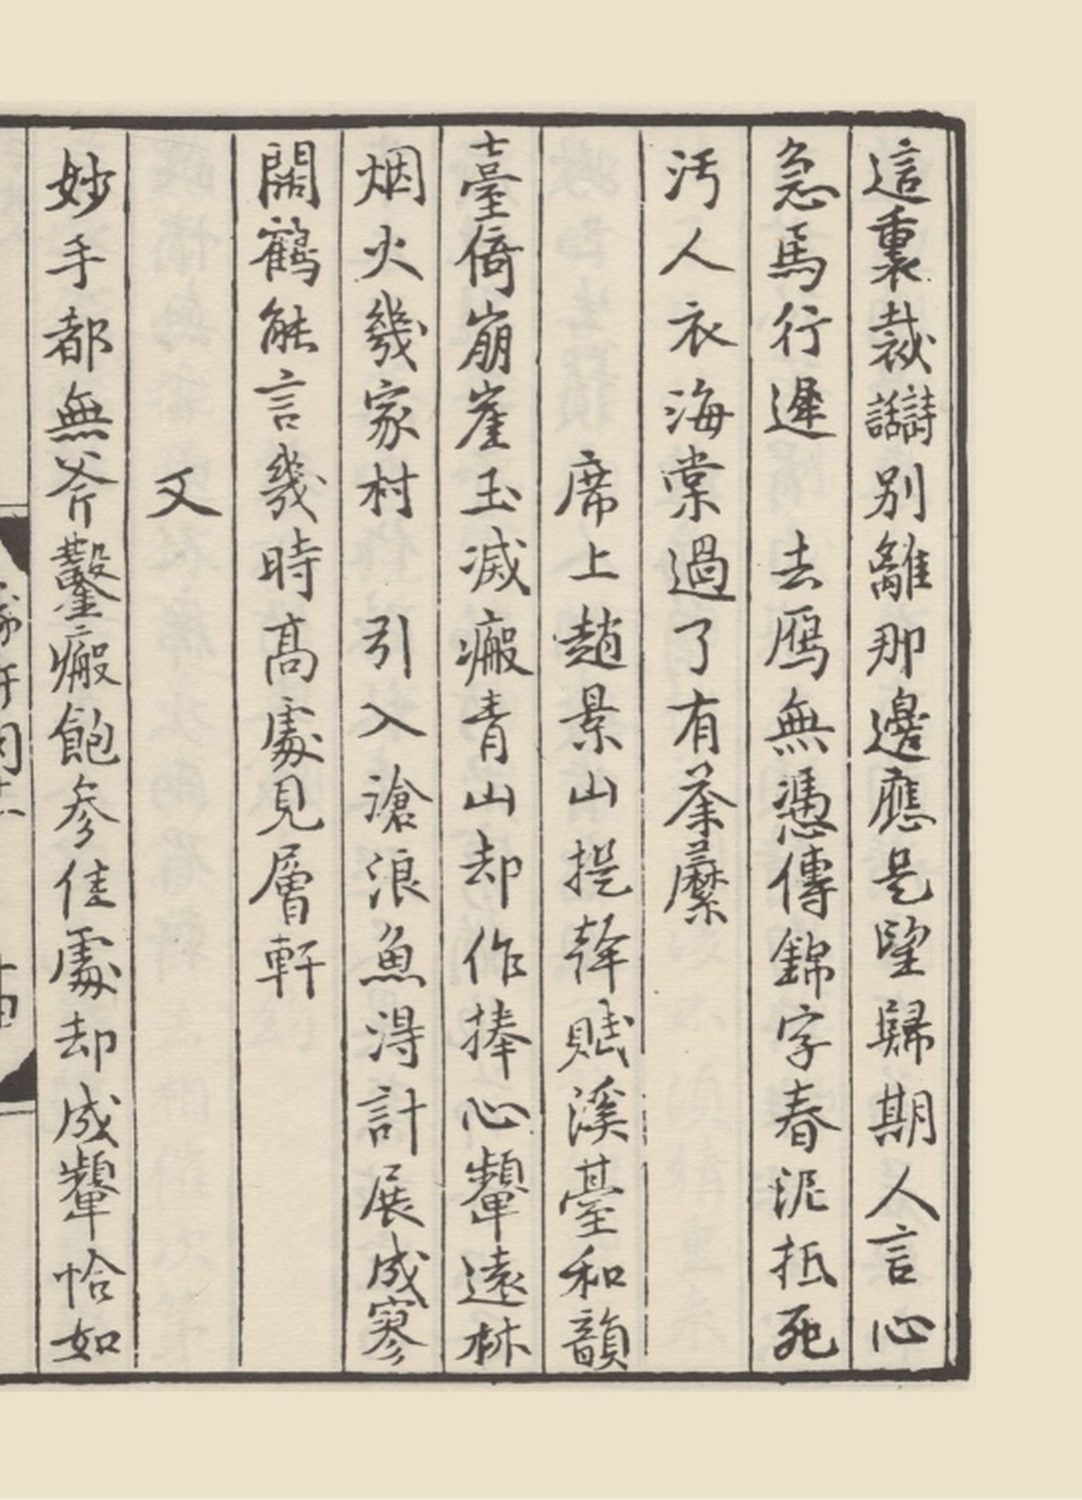 這裏裁詩話別離那邊應是望歸期人言心
急馬行遲　去鴈無憑傳錦字春泥抵死
汚人衣海棠過了有荼蘼
席上趙景山提幹賦溪臺和韻
臺倚崩崖玉滅瘢青山却作捧心顰遠林
烟火幾家村　引入滄浪魚淂計展成寥
闊鶴能言幾時髙處見層軒
又
妙手都無斧鑿瘢飽参佳處却成顰恰如